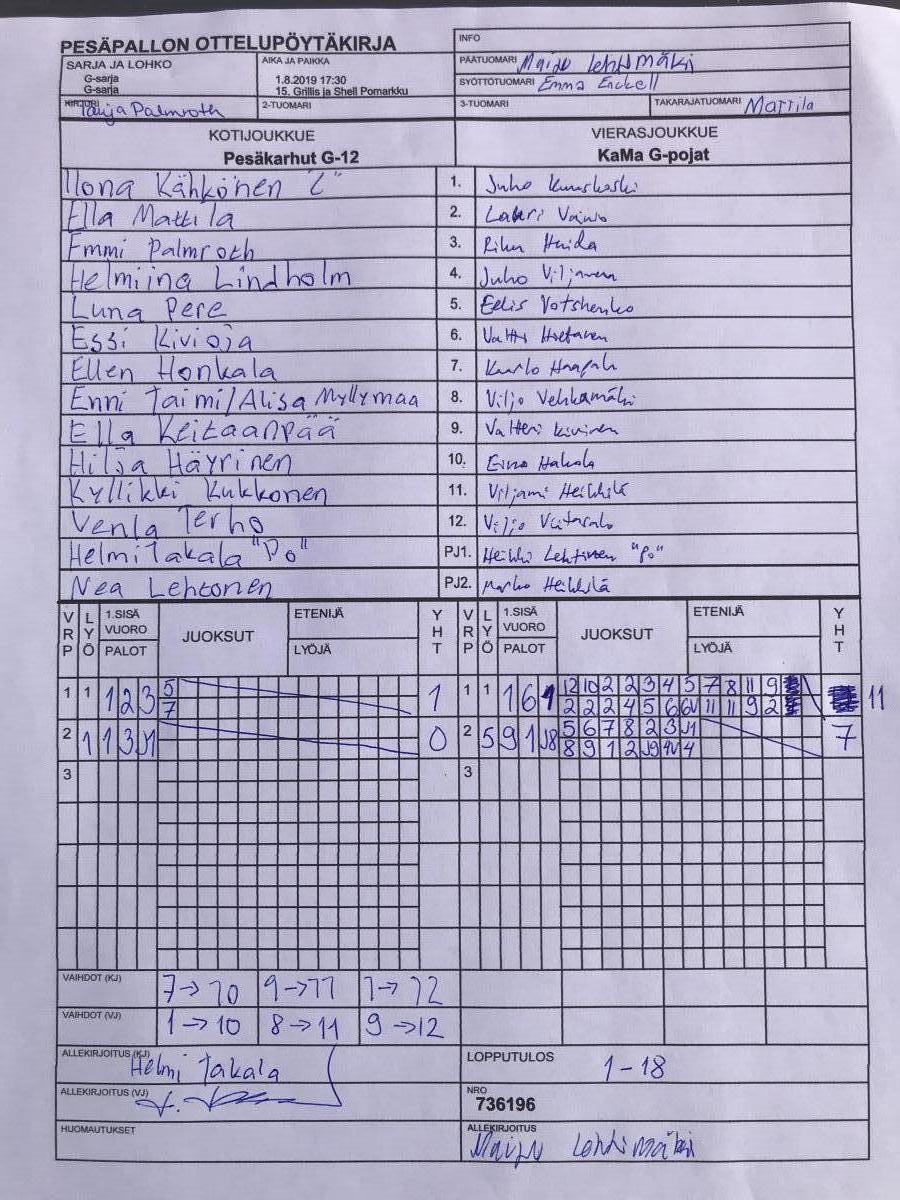 PESÄPALLON OTTELUPÖYTÄKIRJA
INFO
SARJA JA LOHKO
G-sarja
G-sarja
AIKA JA PAIKKA
1.8.2019 17:30
15. Grillis ja Shell Pomarkku
PÄÄTUOMARI Maiju Lehtimäki
SYÖTTÖTUOMARI Emma Enckell
KIRJURI Tarja Palmroth
2-TUOMARI
3-TUOMARI
TAKARAJATUOMARI Mattila
KOTIJOUKKUE
Pesäkarhut G-12
VIERASJOUKKUE
KaMa G-pojat
Ilona Kähkönen "C" 1. Juho
Ella Mattila 2. Lauri Vainio
Emmi Palmroth 3. Riku
Helmiina Lindholm 4. Juho Viljanen
Luna Pere 5. Eelis Votshenko
Essi Kivioja 6. Valtti
Ellen Honkala 7.
Enni Taimi/Alisa Myllymaa 8. Viljo Vehkamäki
Ella Keitaanpää 9. Valtteri Kivinen
Hilja Häyrinen 10. Eino Hakala
Kyllikki Kukkonen 11. Viljami Heikkilä
Venla Terho 12. Viljo Viitasalo
Helmi Takala "Po" PJ1. Heikki Lehtinen "Po"
Nea Lehtonen PJ2. Marko Heikkilä
VRP LYÖ 1.SISÄ VUORO PALOT JUOKSUT ETENIJÄ LYÖJÄ YHT
VRP LYÖ 1.SISÄ VUORO PALOT JUOKSUT ETENIJÄ LYÖJÄ YHT
1 1 1 2 3 5 1
7
1 1 1 6 1 12 10 2 2 3 4 5 7 8 11 9 11
2 2 2 4 5 6 6V 11 11 9 2
2 1 1 3 J1 0
2 5 9 1 J8 5 6 7 8 2 3 J1 7
8 9 1 2 J9 4V 4
3 3
VAIHDOT (KJ) 7→10 9→11 1→12
VAIHDOT (VJ) 1→10 8→11 9→12
ALLEKIRJOITUS (KJ) Helmi Takala
LOPPUTULOS 1-18
ALLEKIRJOITUS (VJ)
NRO
736196
HUOMAUTUKSET
ALLEKIRJOITUS
Maiju Lehtimäki